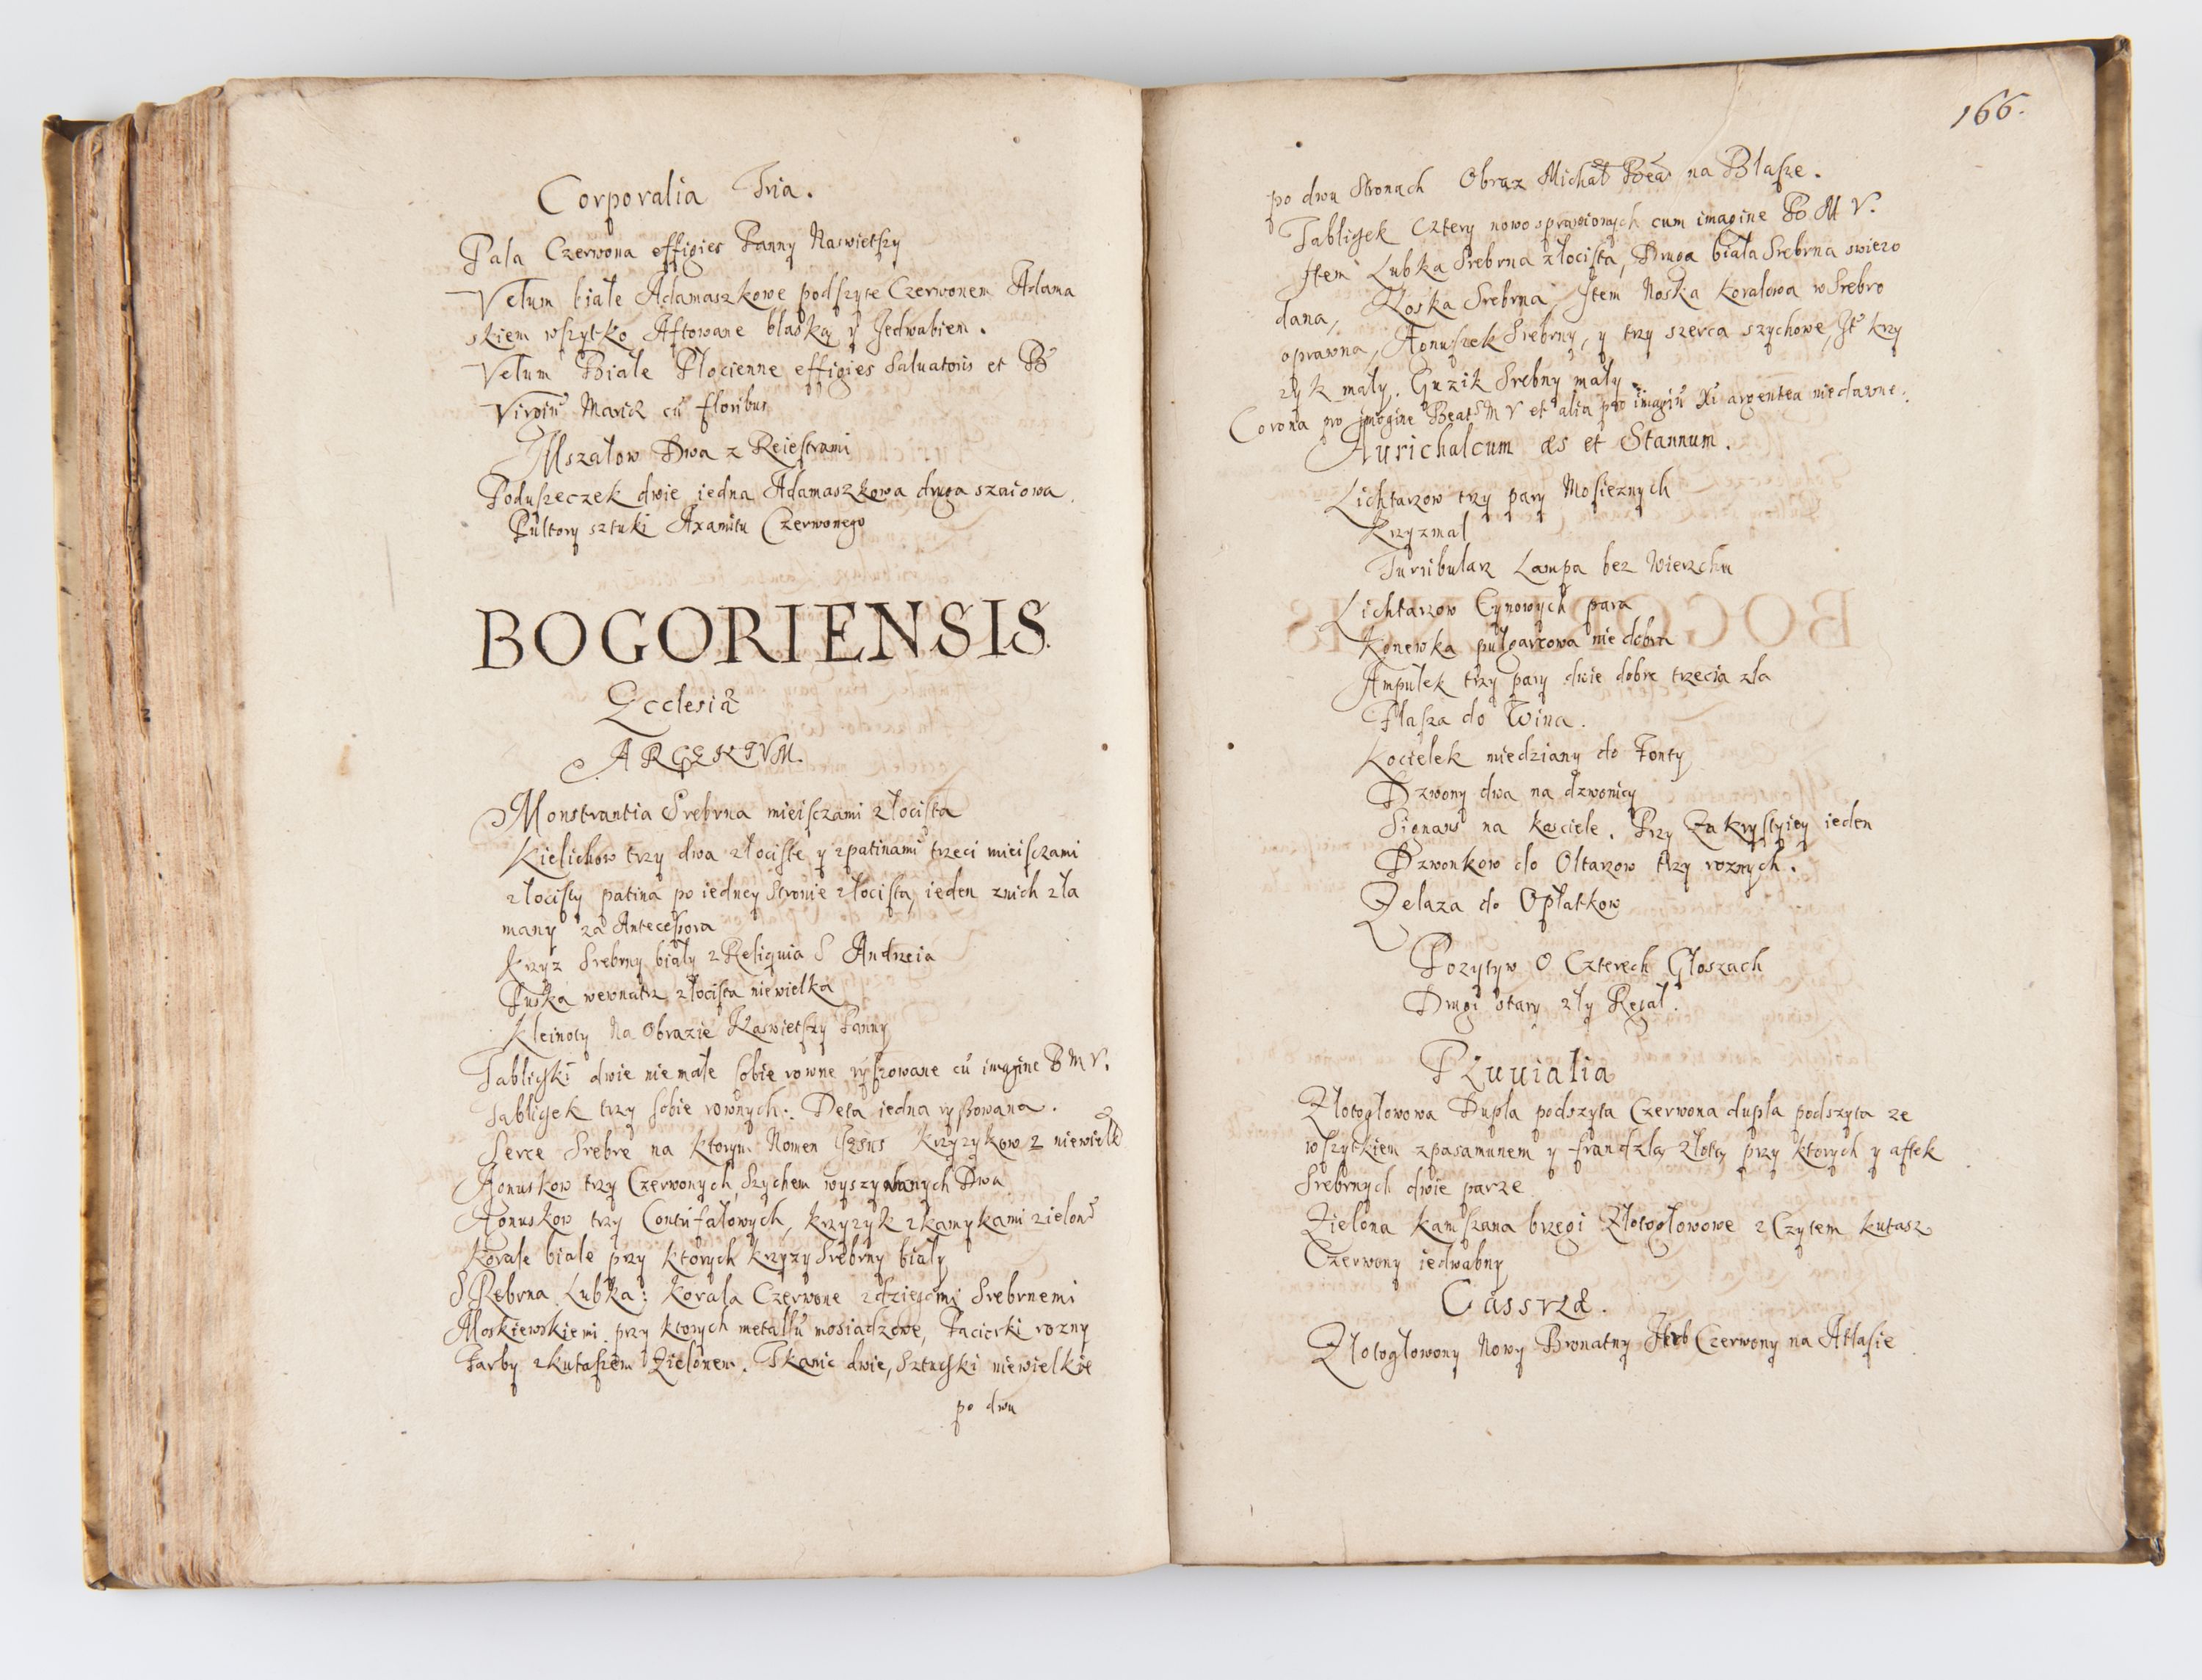 Corporalia Tria.
Pala Czerwona effigies Panny Naswietszy
Velum białe Adamaszkowe podszyte Czerwonem Adama
skiem wszytko Aftowane blaską y Jedwabiem.
Velum Białe Płocienne effigies Saluatoris et B
Virgin Mariæ cū floribus
Mszałow Dwa z Reiestrami
Poduszeczek dwie iedna Adamaszkowa druga szaiowa.
Pułtory sztuki Axamitu Czerwonego
BOGORIENSIS.
Ecclesiæ
ARGENTVM.
Monstrantia Srebrna mieiscami złocista
Kielichow trzy dwa złociste y zpatinami trzeci mieiscami
złocisty patina po iedney stronie złocista, ieden znich zła
many za Antecessora
Krzyz Srebrny biały z Reliquia S Andrzeia
Puska wewnatrz złocista niewielka
Kleinoty Na Obrazie Naswietszy Panny
Tabliczki dwie niemałe sobie rowne ryssowane cū imagine B M V.
Tabliczek trzy sobie rownych. Deta iedna ryssowana.
Serce Srebre na ktorym Nomen Jesus Krzyzykow 2 niewielk
Agnuskow trzy Czerwonych, Szychem wyszywanych Dwa
Agnuskow trzy Contufałowych, krzyzyk zkamykami zielon
Korale białe przy ktorych krzyzy Srebrny biały
SRebrna Lubka: Korala Czerwone zdziesomi Srebrnemi
Moskiewskiemi przy ktorych metallū mosiadzowe, Pacierki rozny
Farby zkutasiem Zielonem. Tkanic dwie, Sztuczki niewielkie
po dwu
166.
po dwu Stronach Obraz Michał Bea na Blasze.
Tabliczek Cztery nowo sprawionych cum imagine B M V.
Jtem Lubka Srebrna złocista, Druga biała Srebrna swiezo
dana, Noska Srebrna Jtem Noska Koralowa w Srebro
oprawna, Agnuszek Srebrny, y trzy szerca szychowe, Jt krzy
zyk mały. Guzik Srebny mały
Corona pro imagine Beat M V et alia pro imagin Xi argentea niedawne.
Aurichalcum æs et Stannum.
Lichtarzow trzy pary Mosieznych
Krzyzmal
Turribularz Lampa bez Wierzchu
Lichtarzow Cynowych para
Konewka pułgarcowa nie dobra
Ampułek trzy pary dwie dobre trzecia zła
Flasza do Wina.
Kociełek miedziany do Fonty
Dzwony dwa na dzwonicy
Signars na kosciele. Przy Zakrystyiey ieden
Dzwonkow do Ołtarzow trzy roznych.
Zelaza do Opłatkow
Pozytyw o Czterech Głoszach
Drugi stary zły Regał.
Pluuialia
Złotogłowowa Dupla podszyta Czerwona dupla podszyta ze
wszytkiem zpasamunem y frandzlą złotą przy ktorych y aftek
Srebrnych dwie parze
Zielona kamszana brzegi Złotogłowowe z Czytem kutasz
Czerwony iedwabny
Casulæ.
Złotogłowony Nowy Bronatny Herb Czerwony na Atłasie